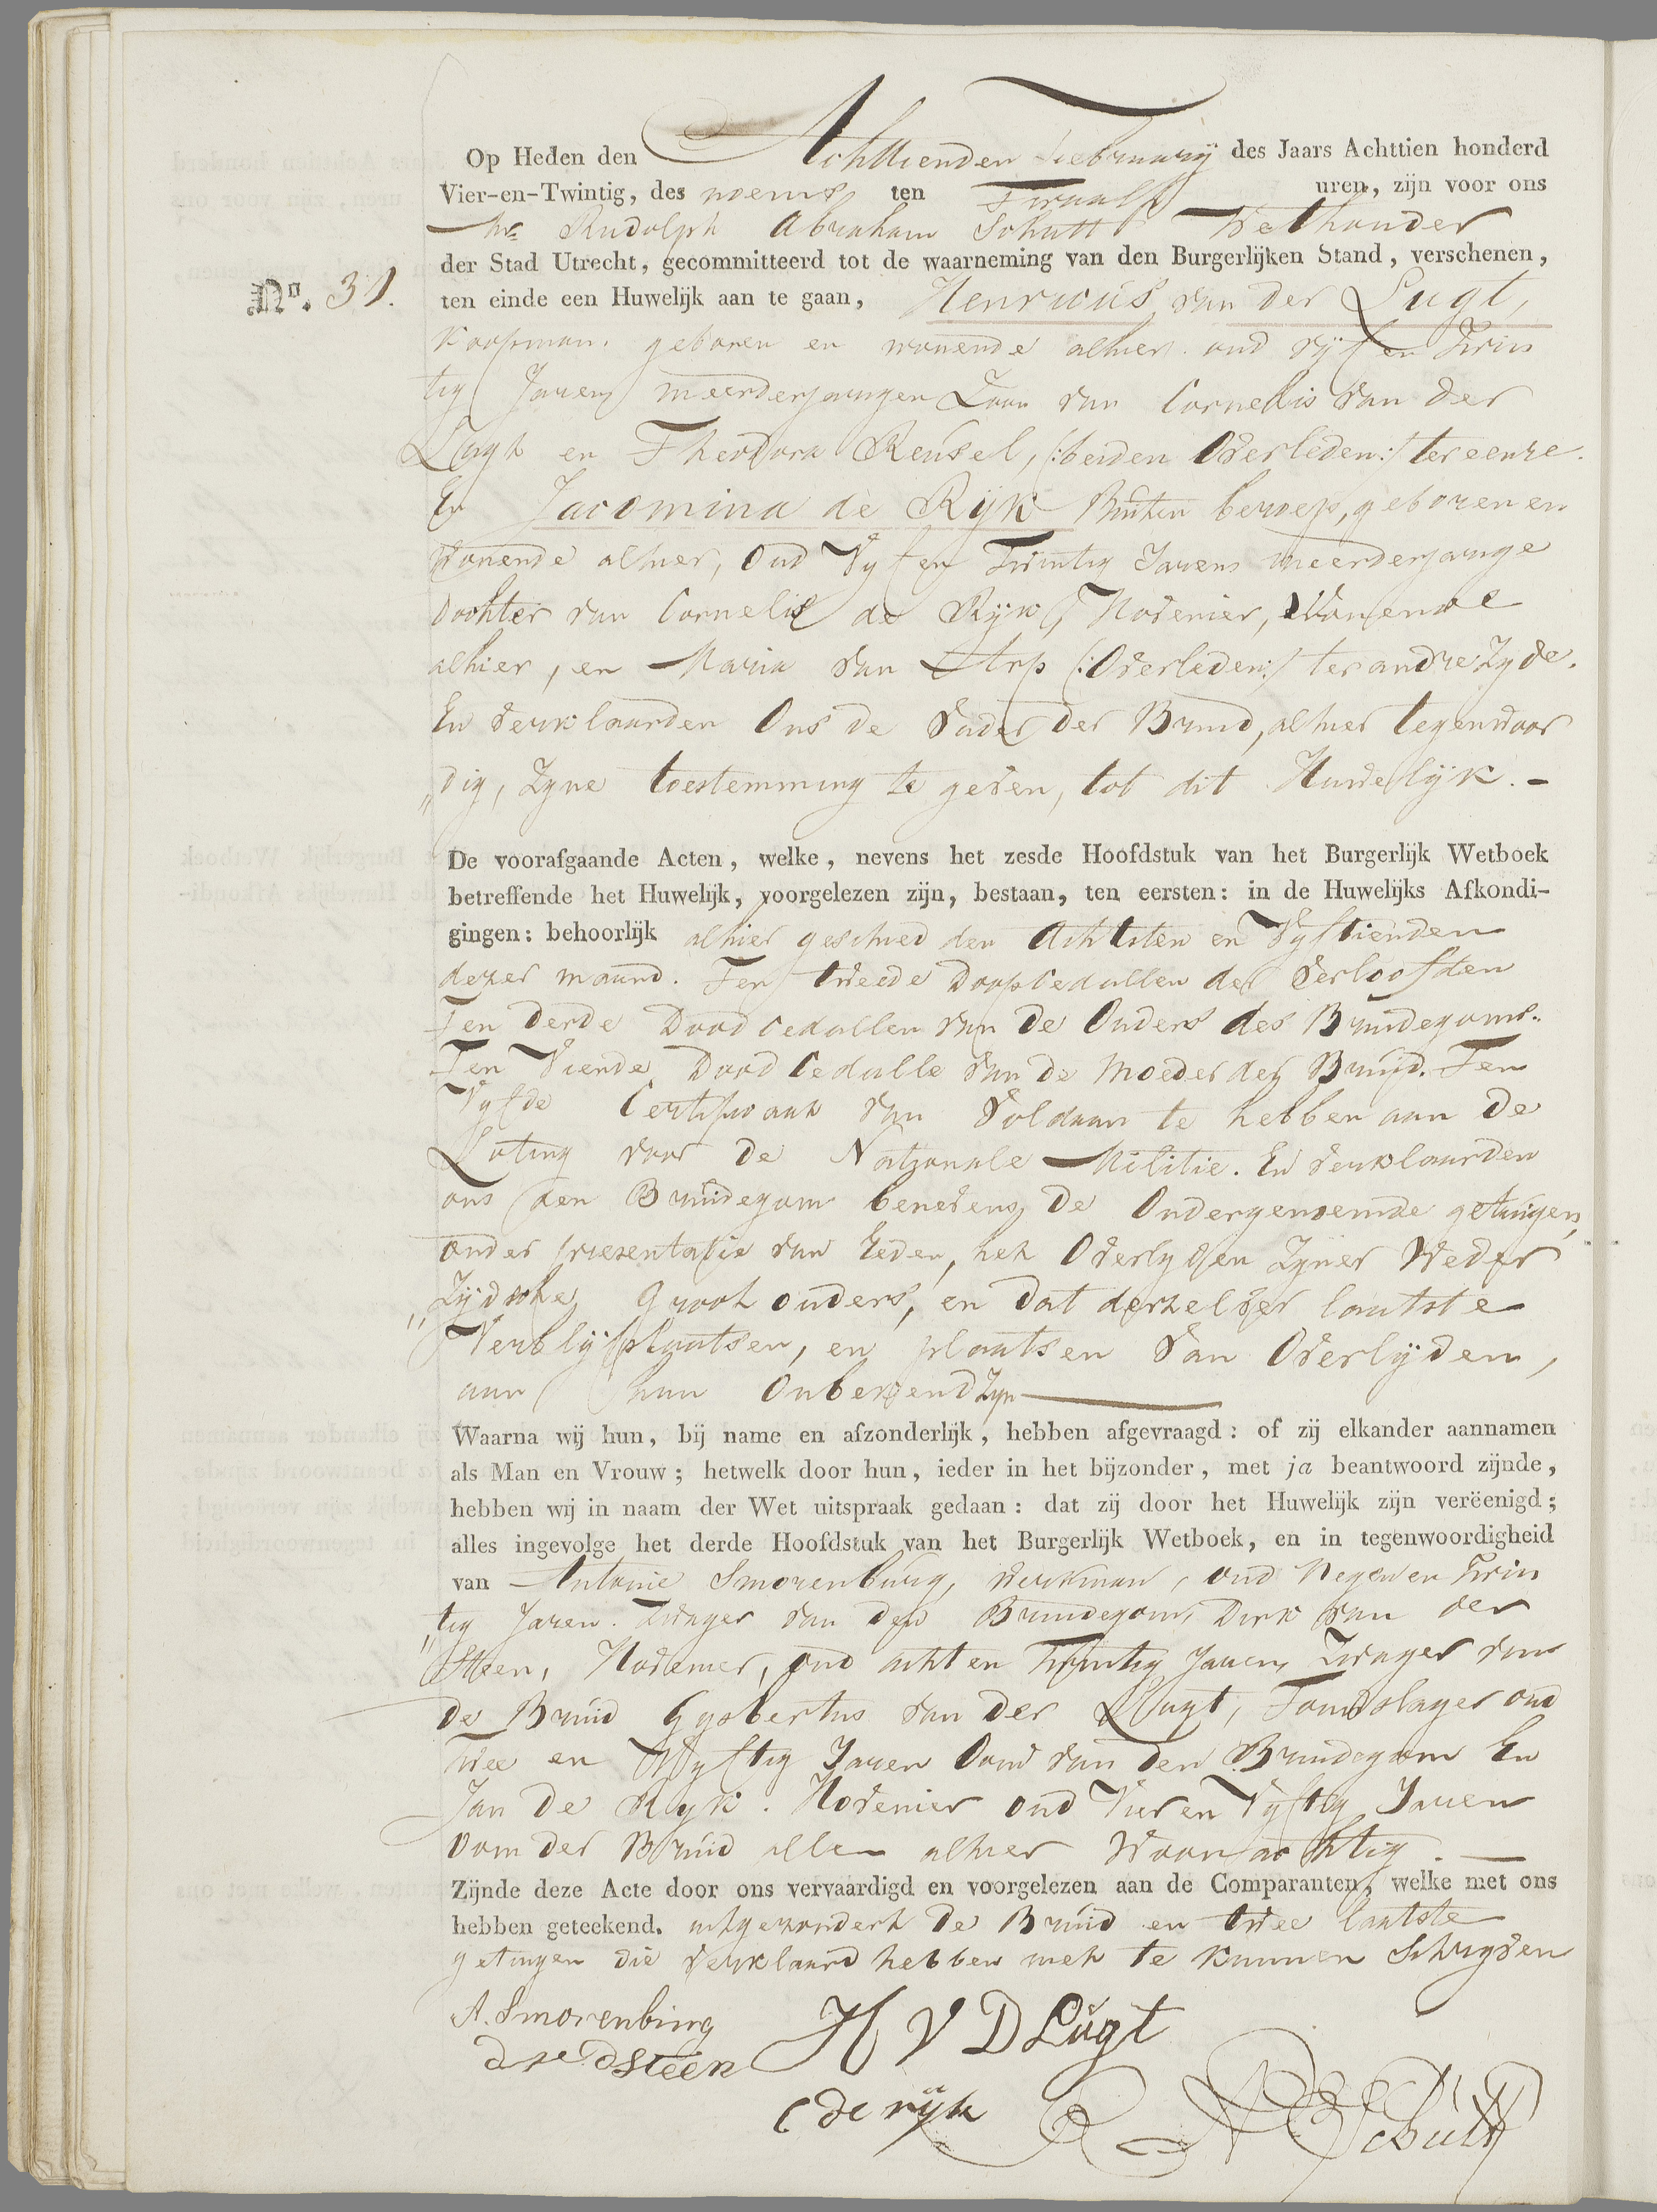 Op Heden den Achttienden Februarij des Jaars Achttien honderd
Vier-en-Twintig, des voemds ten Twaalf uren, zijn voor ons
Mr. Rudolph Abraham Schutt Wethouder
der Stad Utrecht, gecommitteerd tot de waarneming van den Burgerlijken Stand, verschenen,
No. 31. ten einde een Huwelijk aan te gaan, Henricus van der Lugt,
Koopman, geboren en wonende alhier oud vijf en Twin
tig Jaren meerderjarigen Zoon van Cornelis van der
Lugt en Theodora Reusel, (:beiden Overleden:) ter eenre.
En Jacomina de Rijk Buiten beroep, geboren en
wonende alhier, Oud Vyf en Twintig Jaren meerderjarige
dochter van Cornelis de Rijk, Hovenier, Wonende
alhier, en Maria van Arp (:Overleden:) ter andre Zyde.
En verklaarden Ons de Vader der Bruid, alhier tegenwoor
„dig, Zyne toestemming te geven, tot dit Huwelijk. -
De voorafgaande Acten, welke, nevens het zesde Hoofdstuk van het Burgerlijk Wetboek
betreffende het Huwelijk, voorgelezen zijn, bestaan, ten eersten: in de Huwelijks Afkondi-
gingen: behoorlijk alhier geschied den Achtsten en Vyftienden
dezer maand. Ten tweede Doopcedullen der Verloofden
Ten derde Doodcedullen van de Ouders des Bruidegoms.
Ten Vierde Doodcedulle van de Moeder der Bruijd. Ten
Vyfde Certificaat van Voldaan te hebben aan De
Loting voor de Nationale Militie. En verklaarden
ons den Bruidegom benevens De Ondergenoemde getuigen,
onder presentatie van Eeden, het Overlyden Zyner Weder
„Zijdsche Groot ouders, en dat derzelver laatste
Verblijfplaatsen, en plaatsen van Overlijden,
aan hun Onbekend Zyn
Waarna wij hun, bij name en afzonderlijk, hebben afgevraagd: of zij elkander aannamen
als Man en Vrouw; hetwelk door hun, ieder in het bijzonder, met ja beantwoord zijnde,
hebben wij in naam der Wet uitspraak gedaan: dat zij door het Huwelijk zijn verëenigd;
alles ingevolge het derde Hoofdstuk van het Burgerlijk Wetboek, en in tegenwoordigheid
van Antonie Smorenburg, werkman, oud Negen en Twin
„tig Jaren. Zwager van den Bruidegom, Dirk van der
Steen, Hovenier, oud acht en Twintig Jaren, Zwager van
de Bruid Gysbertus van der Lugt, Touwslager oud
twee en Vyftig Jaren Oom van den Bruidegom En
Jan de Ryk. Hovenier oud Vier en Vyftig Jaren
Oom der Bruid allen alhier Woonachtig.
Zijnde deze Acte door ons vervaardigd en voorgelezen aan de Comparanten, welke met ons
hebben geteekend. uitgezonderd de Bruid en twee laatste
getuigen die verklaard hebben niet te kunnen Schryven
A. Smorenburg H V D Lugt
d v d Steen
C de rijk R A Schutt